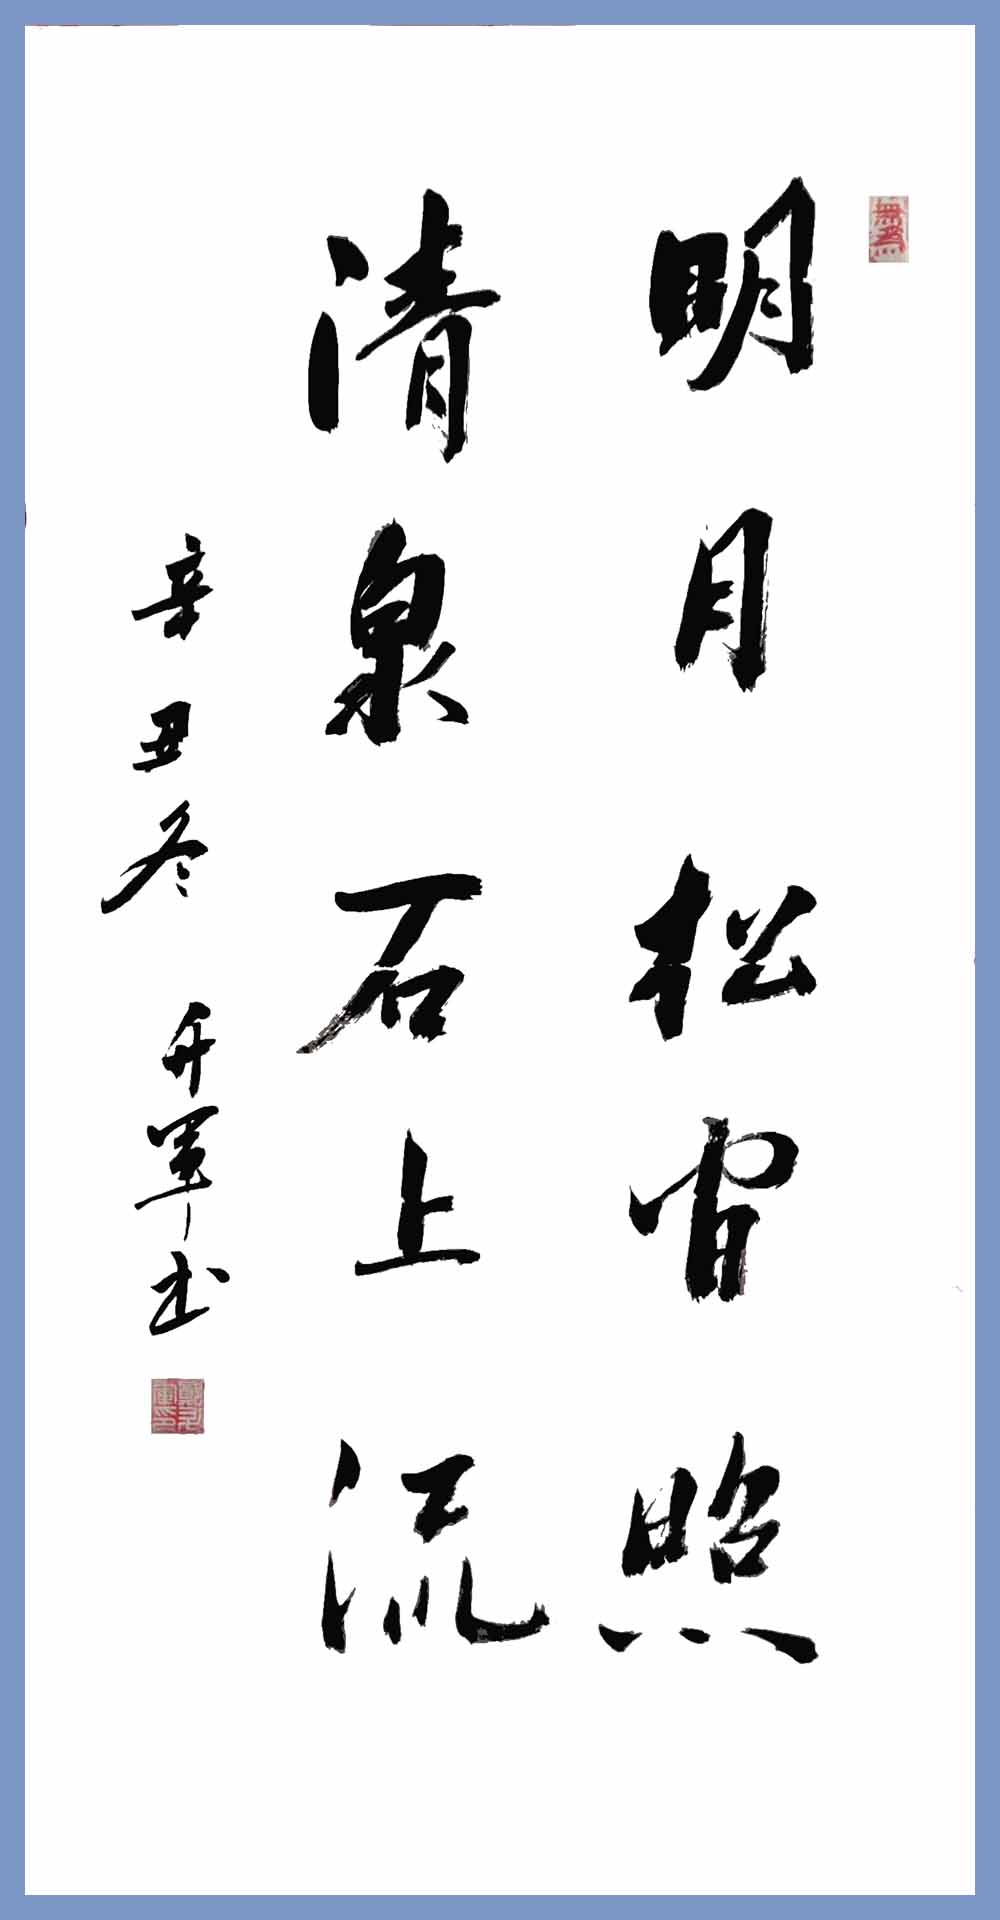 明月松间照
清泉石上流
辛丑冬 升军书
無為